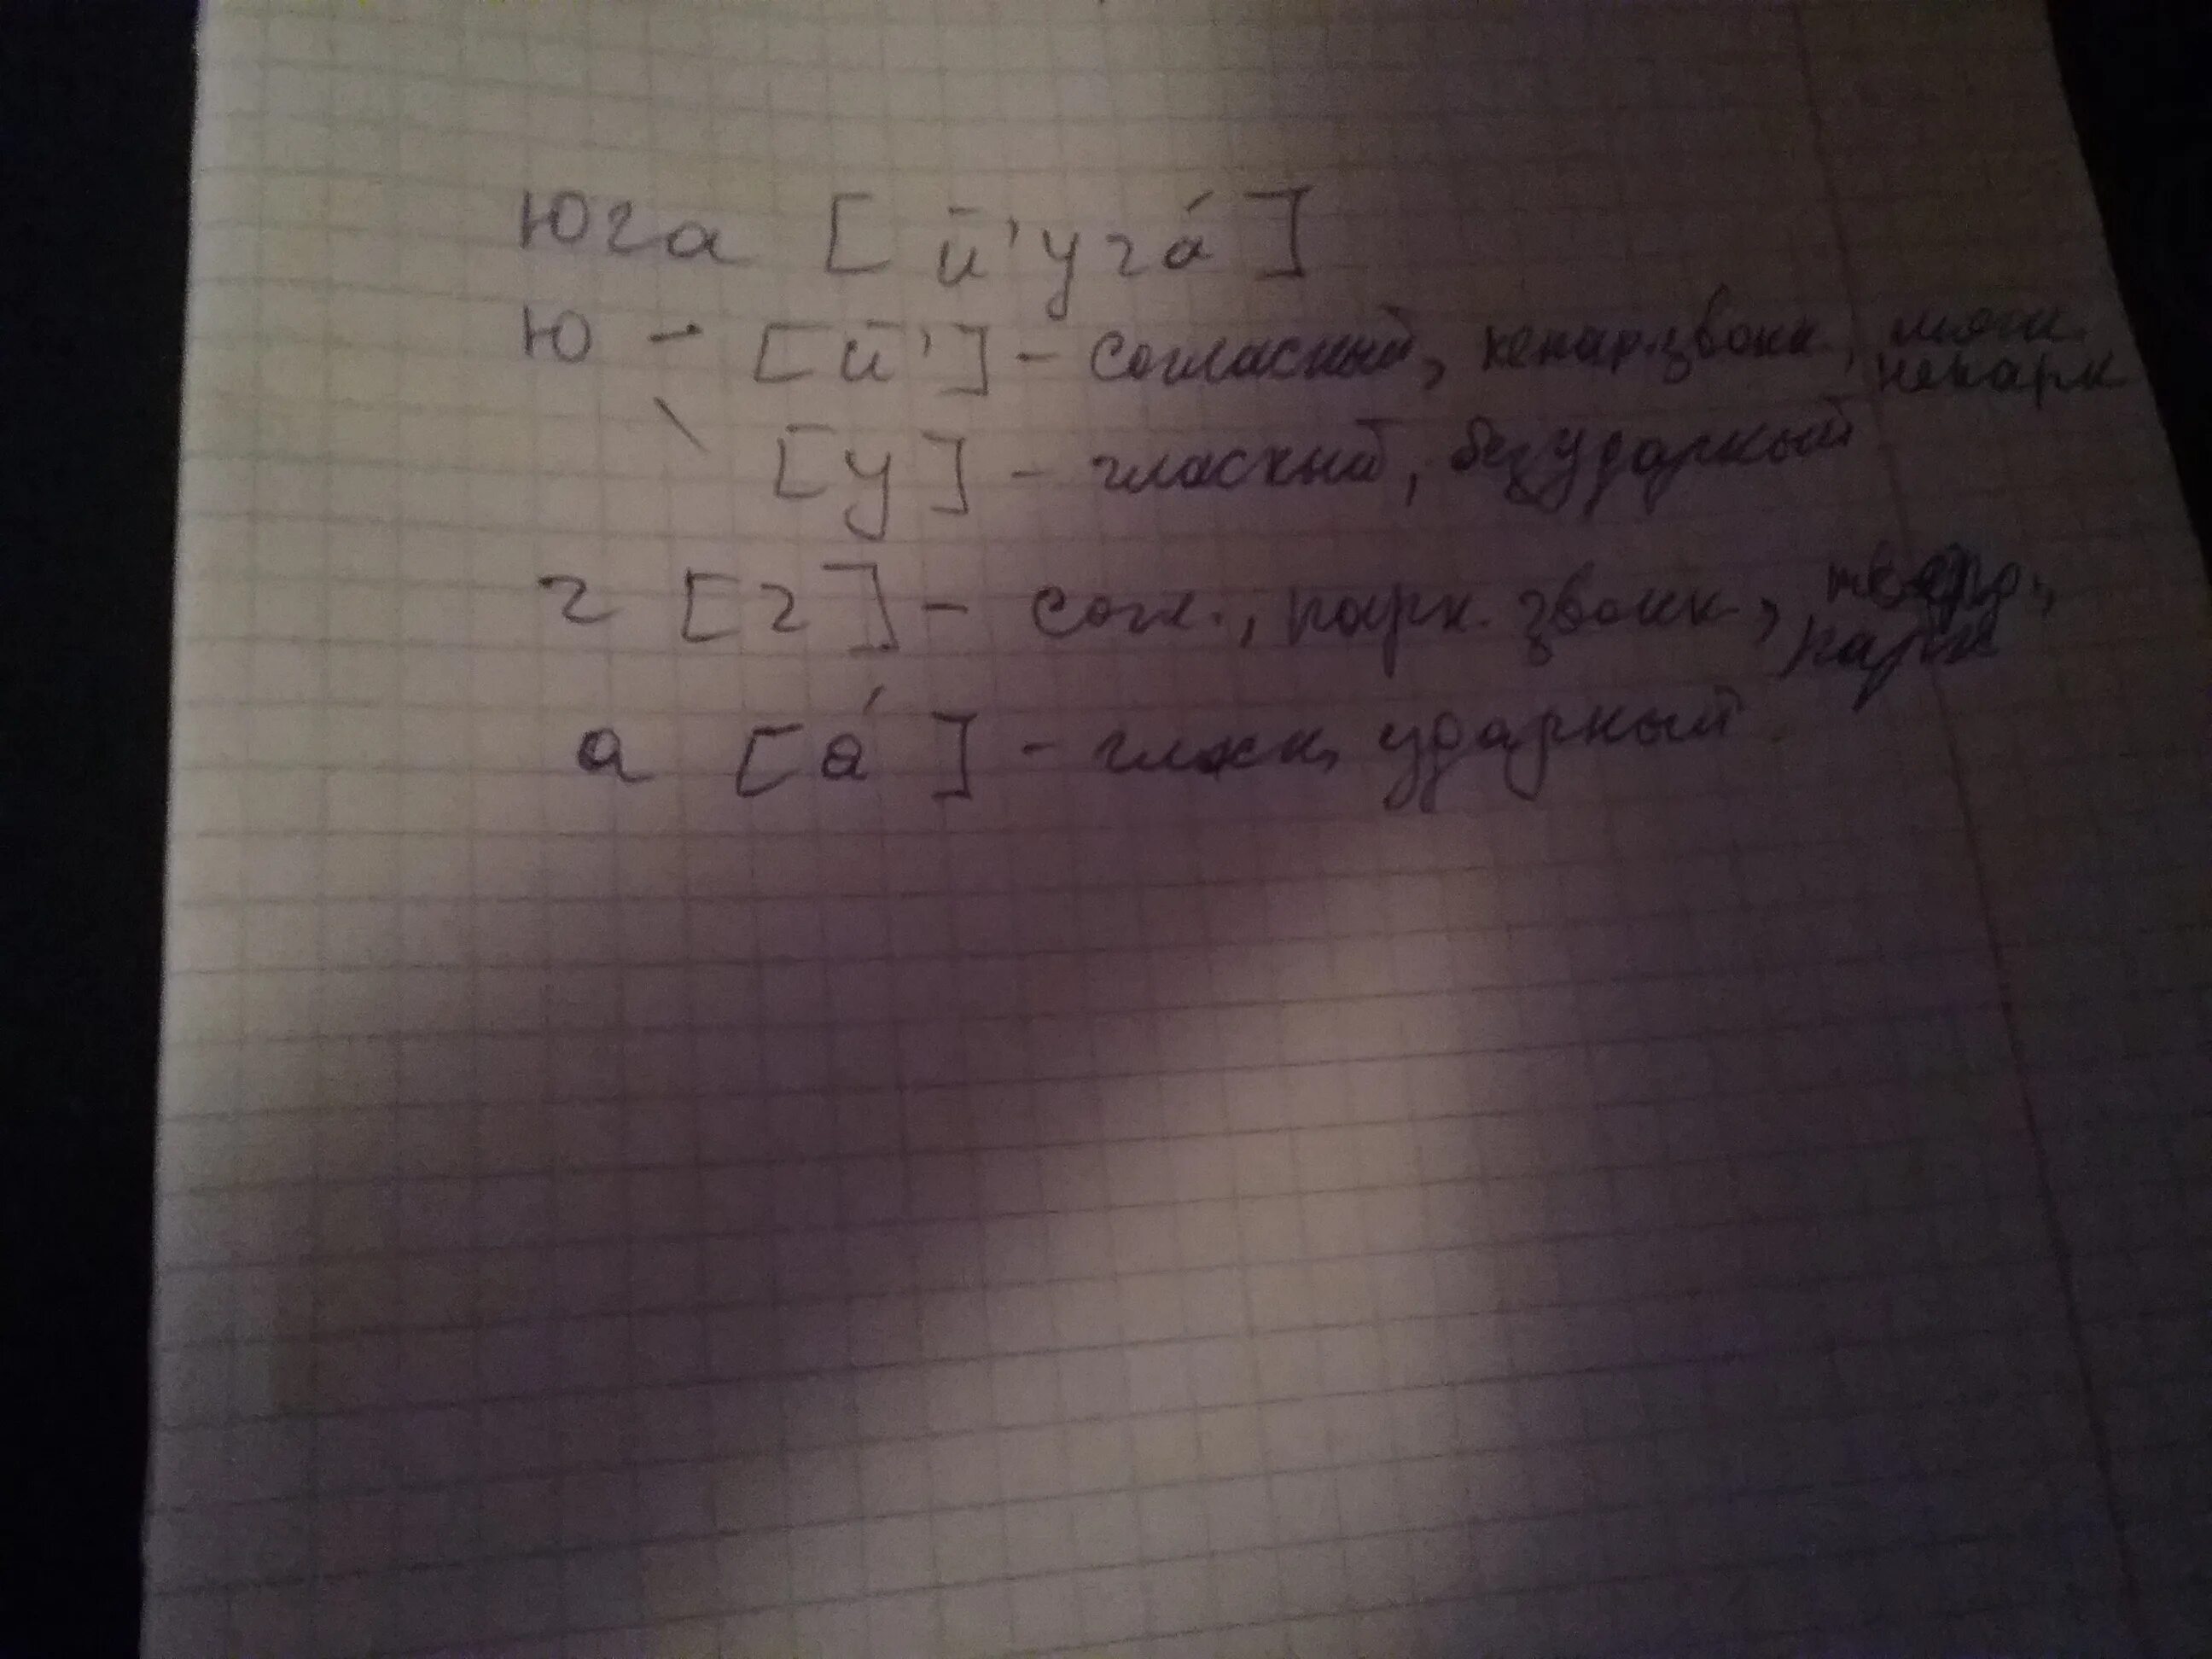 юга [й'уга́]
ю - [й'] - согласный, непар. звонк., мягк. непарн
\ [у] - гласный, безударный
г [г] - согл., парн. звонк., твёрд., парн
а [а́] - гласн, ударный